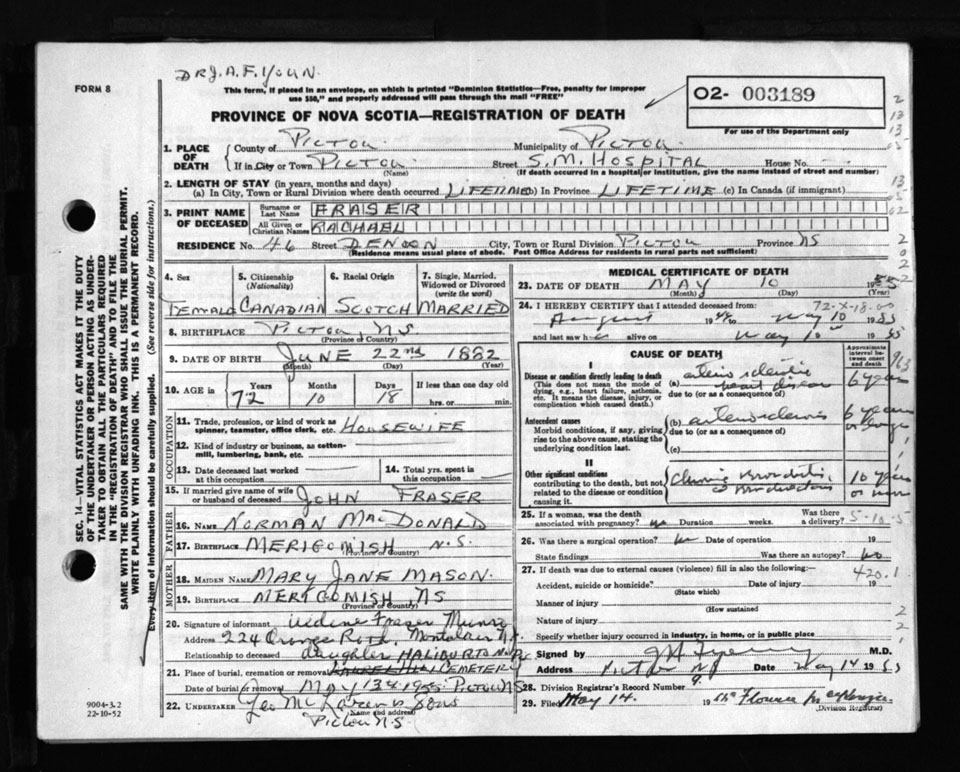 DR J. A. F. YOUN
FORM 8
This form, if placed in an envelope, on which is printed "Dominion Statistics—Free, penalty for improper
use $50," and properly addressed will pass through the mail "FREE"
O2- 003189
For use of the Department only
PROVINCE OF NOVA SCOTIA—REGISTRATION OF DEATH
1. PLACE OF DEATH
County of PICTOU Municipality of PICTOU
If in City or Town PICTOU Street S. M. HOSPITAL House No.
(Name) (If death occurred in a hospital or institution, give the name instead of street and number)
2. LENGTH OF STAY (in years, months and days)
(a) In City, Town or Rural Division where death occurred LIFETIME (b) In Province LIFETIME (c) In Canada (if immigrant)
3. PRINT NAME OF DECEASED
Surname or Last Name FRASER
All Given or Christian Names RACHAEL
RESIDENCE No. 46 Street DENOON City, Town or Rural Division PICTOU Province NS
(Residence means usual place of abode. Post Office Address for residents in rural parts not sufficient)
4. Sex 5. Citizenship 6. Racial Origin 7. Single, Married, Widowed or Divorced
(Nationality) (write the word)
FEMALE CANADIAN SCOTCH MARRIED
8. BIRTHPLACE PICTOU, NS
(Province or Country)
9. DATE OF BIRTH JUNE 22nd 1882
(Month) (Day) (Year)
10. AGE in Years Months Days If less than one day old
72 10 18 hrs. or min.
OCCUPATION
11. Trade, profession, or kind of work as
spinner, teamster, office clerk, etc. HOUSEWIFE
12. Kind of industry or business, as cotton-
mill, lumbering, bank, etc.
13. Date deceased last worked at this occupation
14. Total yrs. spent in this occupation
15. If married give name of wife
or husband of deceased JOHN FRASER
FATHER
16. NAME NORMAN MACDONALD
17. BIRTHPLACE MERIGOMISH N.S.
(Province or Country)
MOTHER
18. MAIDEN NAME MARY JANE MASON.
19. BIRTHPLACE MERIGOMISH, NS
(Province or Country)
20. Signature of informant Fraser Munro
Address 224 Orange Road, Montclair N.J.
Relationship to deceased daughter HALIBURTON
21. Place of burial, cremation or removal CEMETERY
Date of burial or removal MAY 13th 1955 PICTOU NS
22. UNDERTAKER Geo McLaren & Sons
(Name and address)
PICTOU N.S.
MEDICAL CERTIFICATE OF DEATH
23. DATE OF DEATH MAY 10 1955
(Month) (Day) (Year)
24. I HEREBY CERTIFY that I attended deceased from: 72-X-18-00
August 19 48 to May 10 1955
and last saw h alive on May 10 1955
CAUSE OF DEATH
Approximate interval between onset and death
I
Disease or condition directly leading to death
(This does not mean the mode of dying, e.g., heart failure, asthenia, etc. It means the disease, injury, or complication which caused death.)
(a) arterio sclerotic heart disease 6 years
due to (or as a consequence of)
Antecedent causes
Morbid conditions, if any, giving rise to the above cause, stating the underlying condition last.
(b) arteriosclerosis 6 years or longer
due to (or as a consequence of)
(c)
II
Other significant conditions
contributing to the death, but not related to the disease or condition causing it.
Chronic Bronchitis 10 years or more
25. If a woman, was the death
associated with pregnancy? no Duration weeks. Was there a delivery?
26. Was there a surgical operation? no Date of operation 19
State findings Was there an autopsy? no
27. If death was due to external causes (violence) fill in also the following: 420.1
Accident, suicide or homicide? Date of injury 19
(State which)
Manner of injury
(How sustained)
Nature of injury
Specify whether injury occurred in industry, in home, or in public place
Signed by M.D.
Address Pictou NS Date May 14 1955
28. Division Registrar's Record Number 9.
29. Filed May 14. 19
(Division Registrar)
SEC. 14—VITAL STATISTICS ACT MAKES IT THE DUTY
OF THE UNDERTAKER OR PERSON ACTING AS UNDER-
TAKER TO OBTAIN ALL THE PARTICULARS REQUIRED
IN THE "REGISTRATION OF DEATH" AND TO FILE THE
SAME WITH THE DIVISION REGISTRAR WHO SHALL ISSUE THE BURIAL PERMIT.
WRITE PLAINLY WITH UNFADING INK. THIS IS A PERMANENT RECORD.
Every item of information should be carefully supplied. (See reverse side for instructions.)
9004-3.2
22-10-52